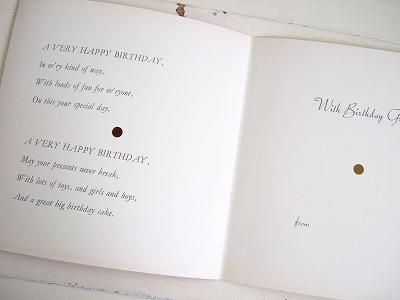 A VERY HAPPY BIRTHDAY,
In ev'ry kind of way,
With loads of fun for ev'ryone,
On this your special day.
A VERY HAPPY BIRTHDAY,
May your presents never break,
With lots of toys, and girls and boys,
And a great big birthday cake.
With Birthday G
from